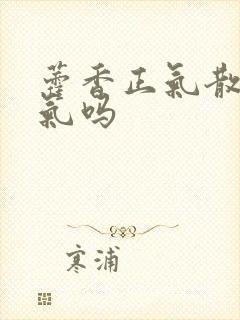 藿香正氣散
氣嗎
寒浦